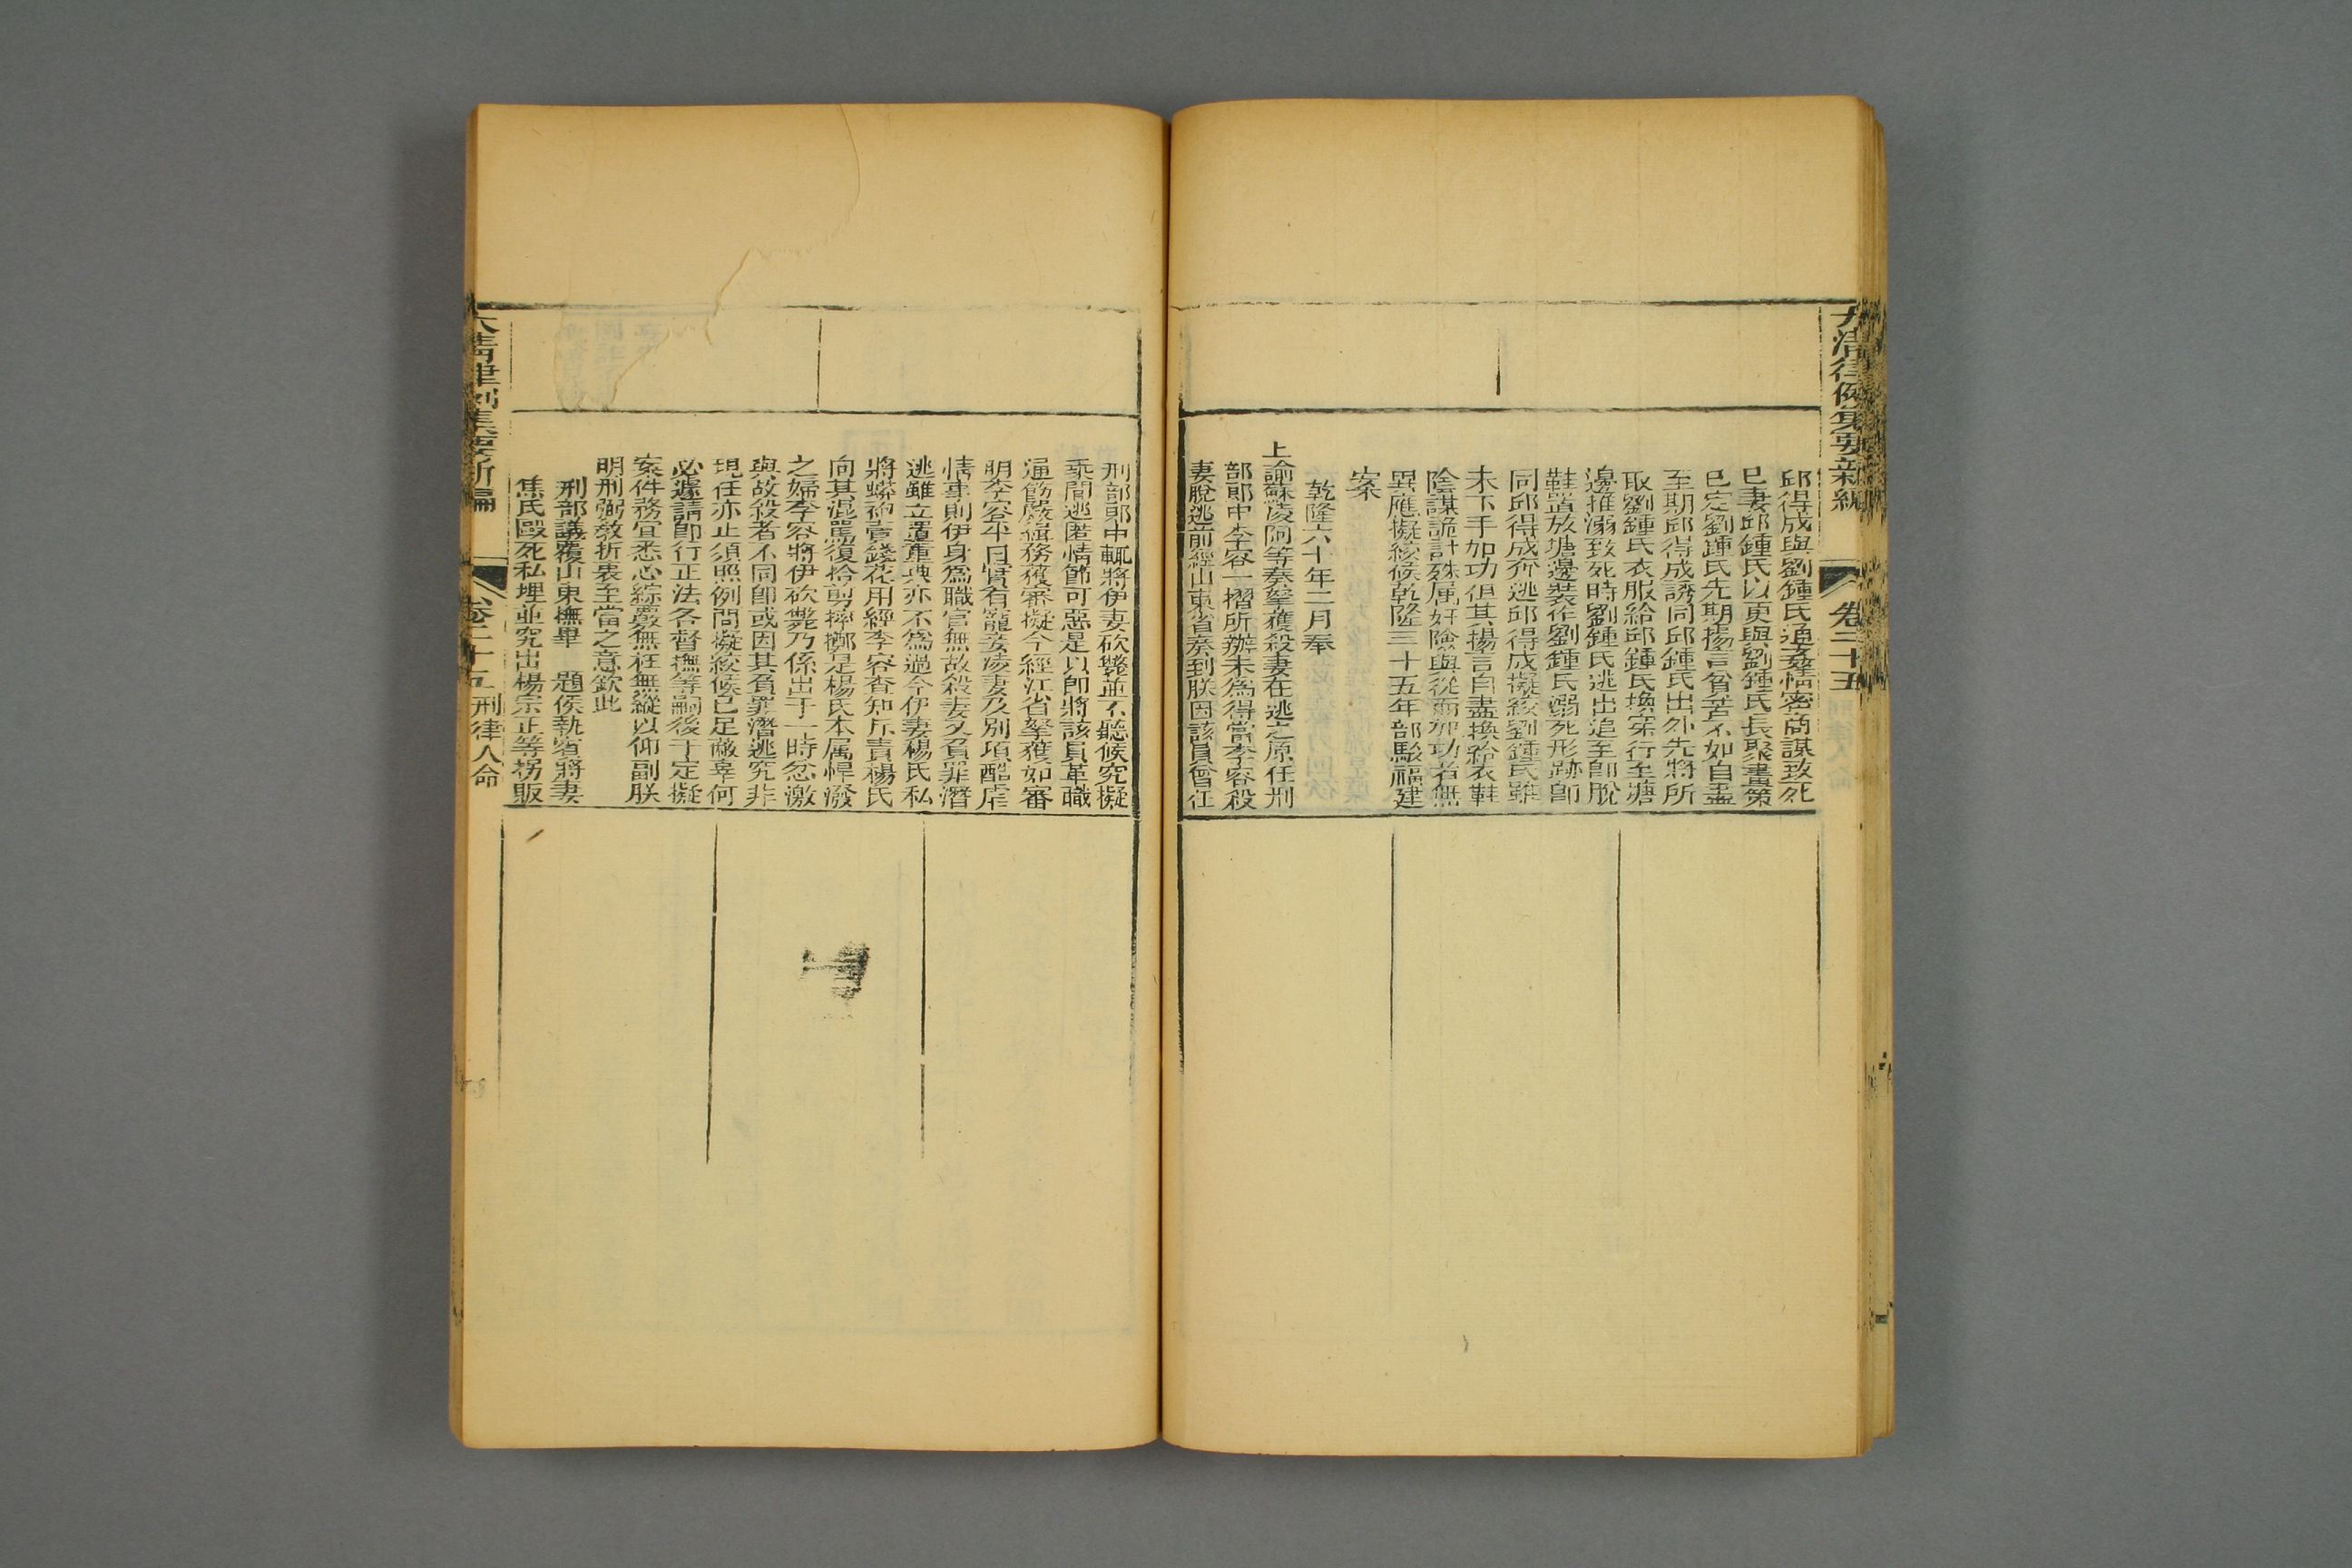 大清律例集要新編
卷二十五
邱得成與劉鍾氏通姦情密商謀致死
已妻邱鍾氏以更與劉鍾氏長聚畫策
已定劉鍾氏先期揚言貧苦不如自盡
至期邱得成誘同邱鍾氏出外先將所
取劉鍾氏衣服給邱鍾氏換穿行至塘
邊推溺致死時劉鍾氏逃出追至卽脫
鞋置放塘邊裝作劉鍾氏溺死形跡卽
同邱得成奔逃邱得成擬絞劉鍾氏雖
未下手加功但其揚言自盡換給衣鞋
陰謀詭計殊属奸險與從而加功者無
異應擬絞候乾隆三十五年部駁福建
案
乾隆六十年二月奉
上諭蘇凌阿等奏拏獲殺妻在逃之原任刑
部郎中李容一摺所辦未為得當李容殺
妻脫逃前經山東省奏到朕因該員曾任
刑部郎中輒將伊妻砍斃並不聽候究擬
乘間逃匿情節可惡是以卽將該員革職
通飭嚴緝務獲審擬今經江省拏獲如審
明李容平日實有寵妾凌妻及別項酷虐
情事則伊身為職官無故殺妻又負罪潛
逃雖立置重典亦不為過今伊妻楊氏私
將蟒袍賣錢花用經李容查知斥責楊氏
向其混罵復拾剪擲是楊氏本属悍潑
之婦李容將伊砍斃乃係出于一時忿激
與故殺者不同卽或因其負罪潛逃究非
現任亦止須照例問擬絞候已足蔽辜何
必遽請卽行正法各督撫等嗣後于定擬
案件務宜悉心綜覈無枉無縱以仰副朕
明刑弼教折衷至當之意欽此
刑部議覆山東撫畢 題侯執省將妻
焦氏毆死私埋並究出楊宗正等拐販
大清律例集要新編
卷二十五 刑律人命